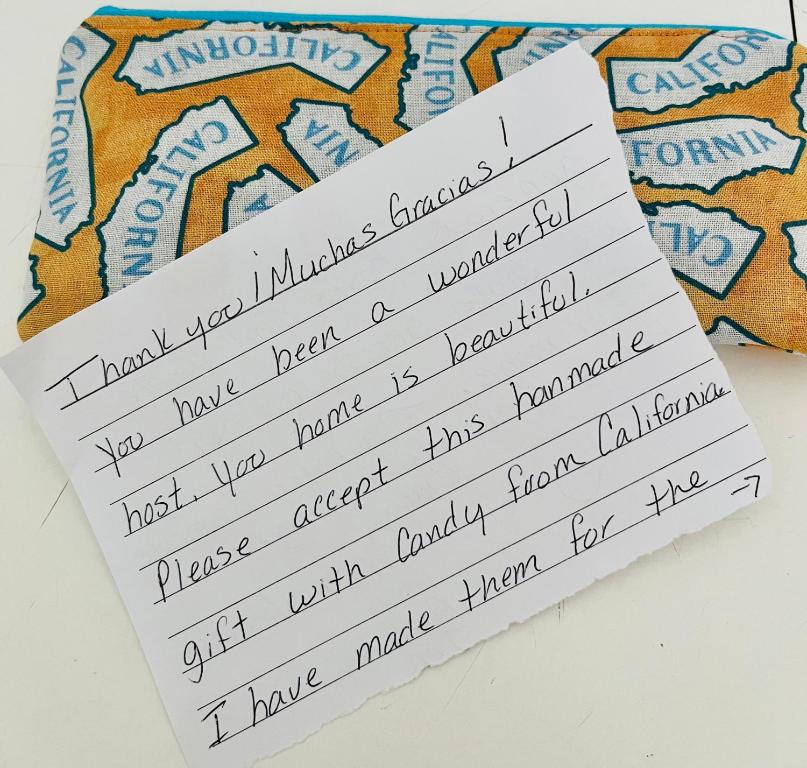 CALIFORNIA
CALIFORNIA
CALIFOR
CALIFOR
CALIFORN
NIA
CA
FORNIA
CAL
Thank you ¡Muchas Gracias!
You have been a wonderful
host. You home is beautiful.
Please accept this hanmade
gift with Candy from California.
I have made them for the →